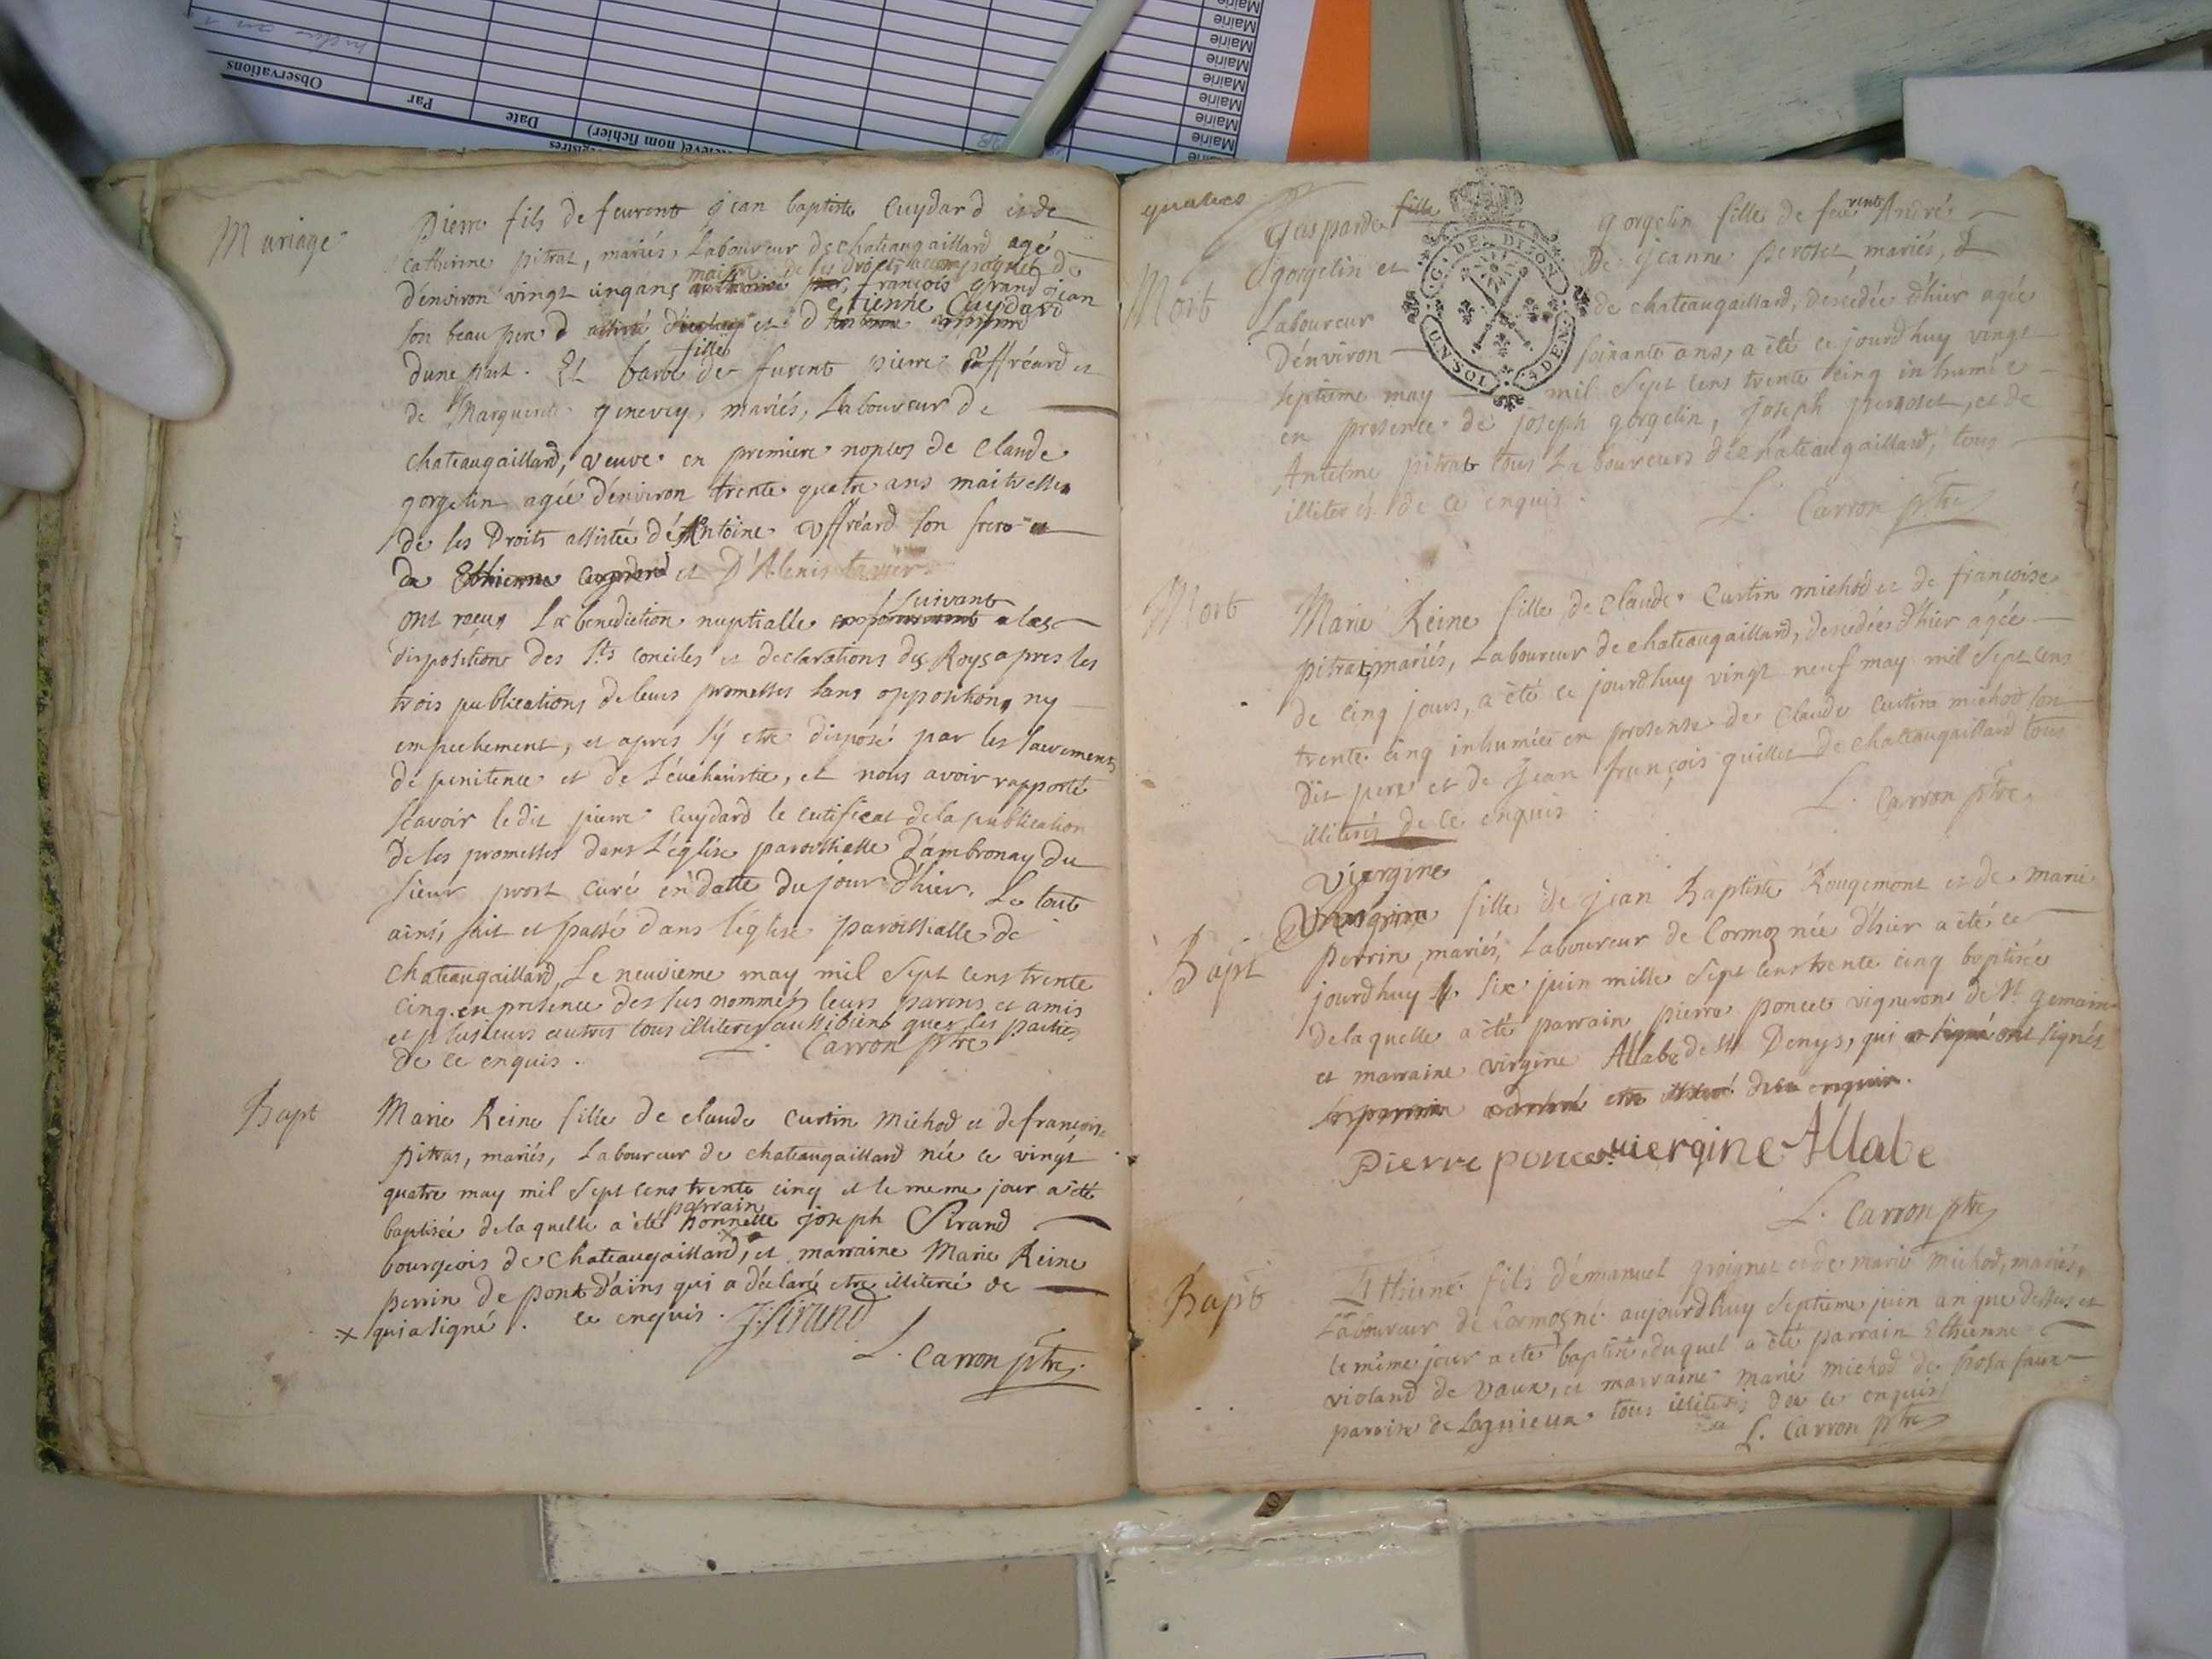 Observations
Par
Date
Relevé (nom fichier)
Mairie
Mairie
Mairie
Mairie
Mairie
Mairie
Mairie
Mairie
Mariage
Pierre fils de feurent jean baptiste Cuydard et de
Catherine pitrat, mariés, Laboureur de chateaugaillard agé
maitre de ses droits accompagné de
d'environ vingt un gans francois grand jean
etienne Cuydard
son beau pere d et d
fille
dune part. Et barbe de furent pierre uffréard et
de Marguerite genevey, mariés, Laboureur de
chateaugaillard, veuve en premiere nopces de Claude
gorgelin agée d'environ trente quatre ans maitresse
de ses Droits assistée d'Antoine uffréard son frere et
de Ethienne cuydard et D'Alexis
suivant
ont reçus La benediction nuptialle conformement a les
dispositions des Sts conciles et declarations des Roys apres les
trois publications de leurs promesses sans opposition, ny
empechement, et apres s'y etre disposé par les sacrements
de penitence et de L'éucharistie, et nous avoir rapporté
scavoir ledit pierre Cuydard le certificat de la publication
de ses promesses dans L'église paroissialle d'ambronay du
sieur prost curé en datte du jour d'hier. Le tout
ainsi fait et passé dans l'église paroissialle de
chateaugaillard, Le neuvieme may mil sept cens trente
cinq en presence des sus nommés leurs parens et amis
et plusieurs autres tous illiterés aussibiens que les parties
de ce enquis. L. Carron ptre
Bapt
Marie Reine fille de claude Curtin michod et de francoise
pitras, mariés, Laboureur de chateaugaillard née ce vingt
quatre may mil sept cens trente cinq et le meme jour a été
parrain
baptisée de laquelle a été honnette joseph Sirand
bourgeois de Chateaugaillard, x et marraine Marie Reine
perrin de pont d'ains qui a déclaré etre illiteré de
x qui a signé. ce enquis. J. Sirand
L. Carron ptre
quatres
G. DE. DIJON
UN SOL
4 DEN.
Mort
Gasparde fille gorgelin fille de feu rent André
gorgelin et De jeanne perosset mariés,
Laboureur de chateaugaillard, desedée d'hier agée
D'énviron soixante ans, a été ce jourdhuy vingt
septieme may mil sept cens trente cinq inhumée
en presence de joseph gorgelin, joseph perrosset, et de
Antelme pitrat tous Laboureurs de chateaugaillard, tous
illiterés de ce enquis. L. Carron ptre
Mort
Marie Reine fille de Claude Curtin michod et de françoise
pitrat, mariés, Laboureur de chateaugaillard, desedée d'hier agée
de cinq jours, a été ce jourdhuy vingt neuf may mil sept cens
trente cinq inhumée en presense de Claude Curtin michod son
dit pere et de Jean françois quillet de chateaugaillard tous
illiterés de ce enquis. L. Carron ptre
Viergine
Bapt
fille de jean Baptiste Rougemont et de marie
perrin, mariés, Laboureur de Cormoz née d'hier a été ce
jourdhuy six juin mille sept cens trente cinq baptisée
de laquelle a été parrain pierre poncet vigneron de St germain
et marraine virgine Allabe de St Denys, qui a signé ont signés
de ce enquis.
Pierre poncet viergine Allabe
L. Carron ptre
Bapt
Ethiene fils d'émanuel proignet et de marie michod, mariés,
Laboureur de Cormoz né aujourdhuy septieme juin an que dessus et
le même jour a été baptisé duquel a été parrain Ethienne
violand de vaux, et marraine marie michod de
paroisse de Lagnieux tous illiterés de ce enquis
L. Carron ptre